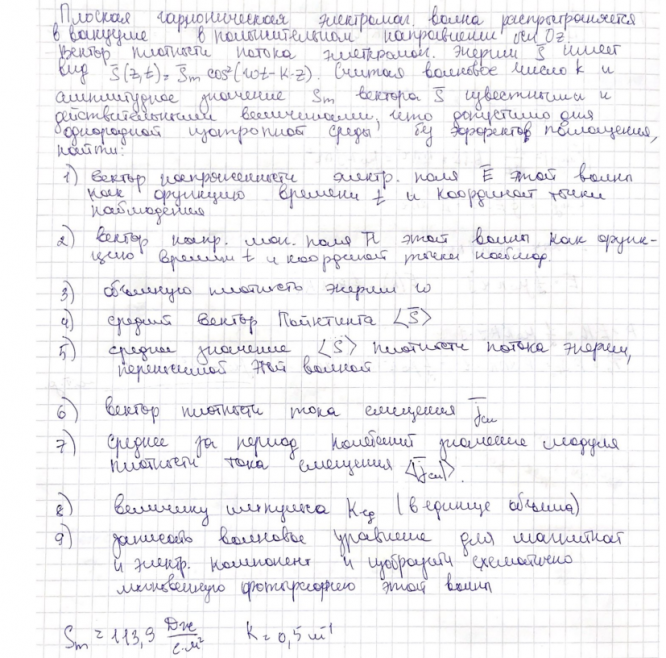 Плоская гармоническая электроман. волна распространяется
в вакууме в положительном направлении оси Oz.
Вектор плотности потока электроман. энергии S̄ имеет
вид S̄(z,t)=S̄m cos²(ωt-k·z). Считая волновое число k и
амплитудное значение Sm вектора S̄ известными и
действительными величинами, что допустимо для
однородной изотропной среды, без эффектов поглощения,
найти:
1) вектор напряженности электр. поля Ē этой волны
как функцию времени t и координат точки
наблюдения
2) вектор напр. маг. поля H̄ этой волны как функ-
цию времени t и координат точки наблюд.
3) объемную плотность энергии w
4) средний вектор Пойнтинга <S̄>
5) среднее значение <S̄> плотности потока энергии,
переносимой этой волной
6) вектор плотности тока смещения j̄см
7) среднее за период колебаний значение модуля
плотности тока смещения <|j̄см|>.
8) величину импульса Kед (в единице объема)
9) записать волновое уравнение для магнитной
и электр. компонент и изобразить схематично
мгновенную фотографию этой волны
Sm = 113,9 Дж/с·м² K = 0,5 м⁻¹